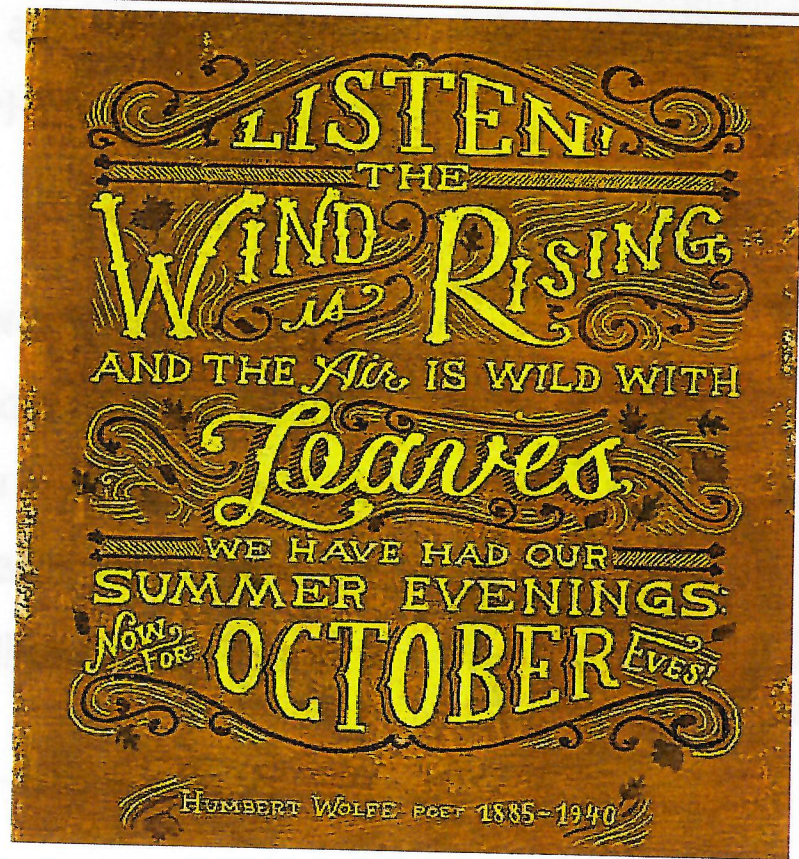 LISTEN!
THE
WIND is RISING,
AND THE Air IS WILD WITH
Leaves,
WE HAVE HAD OUR
SUMMER EVENINGS:
NOW FOR OCTOBER EVES!
HUMBERT WOLFE POET 1885-1940